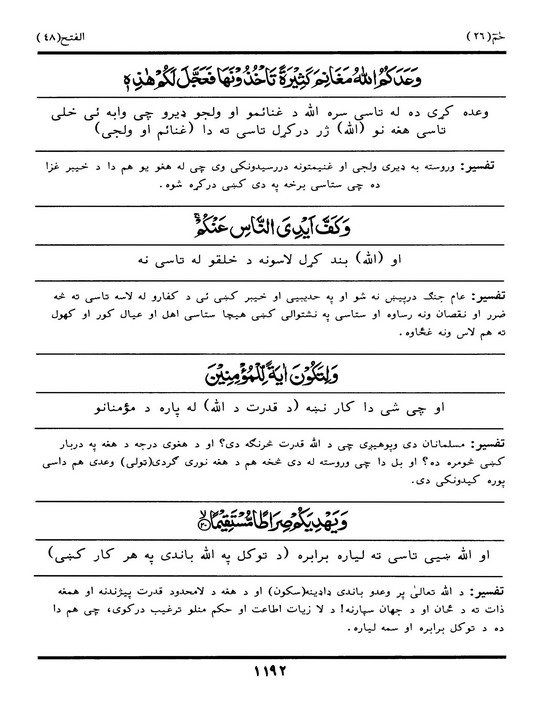 حٰمٓ(٢٦)
الفتح(٤٨)
وَعَدَكُمُ اللّٰهُ مَغَانِمَ كَثِيْرَةً تَاْخُذُوْنَهَا فَعَجَّلَ لَكُمْ هٰذِهٖ
وعده کړی ده له تاسی سره الله د غنائمو او ولجو ډیرو چی وابه ئی خلی
تاسی هغه نو (الله) ژر درکړل تاسی ته دا (غنائم او ولجی)
تفسیر: وروسته به ډیری ولجی او غنیمتونه دررسیدونکی وی چی له هغو یو هم دا د خیبر غزا
ده چی ستاسی برخه په دی کښی درکړه شوه.
وَكَفَّ اَيْدِىَ النَّاسِ عَنْكُمْ
او (الله) بند کړل لاسونه د خلقو له تاسی نه
تفسیر: عام جنګ درپیښ نه شو او په حدیبیی او خیبر کښی ئی د کفارو له لاسه تاسی ته څه
ضرر او نقصان ونه رساوه او ستاسی په نشتوالی کښی هیچا ستاسی اهل او عیال کور او کهول
ته هم لاس ونه غځاوه.
وَلِتَكُوْنَ اٰيَةً لِّلْمُؤْمِنِيْنَ
او چی شی دا کار نښه (د قدرت د الله) له پاره د مؤمنانو
تفسیر: مسلمانان دی وپوهیږی چی د الله قدرت څرنګه دی؟ او د هغوی درجه د هغه په دربار
کښی څومره ده؟ او بل دا چی وروسته له دی څخه هم د هغه نوری ګردی(ټولی) وعدی هم داسی
پوره کیدونکی دی.
وَيَهْدِيَكُمْ صِرَاطًا مُّسْتَقِيْمًا ﴿٢٠﴾
او الله ښیی تاسی ته لیاره برابره (د توکل په الله باندی په هر کار کښی)
تفسیر: د الله تعالیٰ پر وعدو باندی ډاډینه(سکون) او د هغه د لامحدود قدرت پیژندنه او همغه
ذات ته د ځان او د جهان سپارنه! د لا زیات اطاعت او حکم منلو ترغیب درکوی، چی هم دا
ده د توکل برابره او سمه لیاره.
١١٩٢